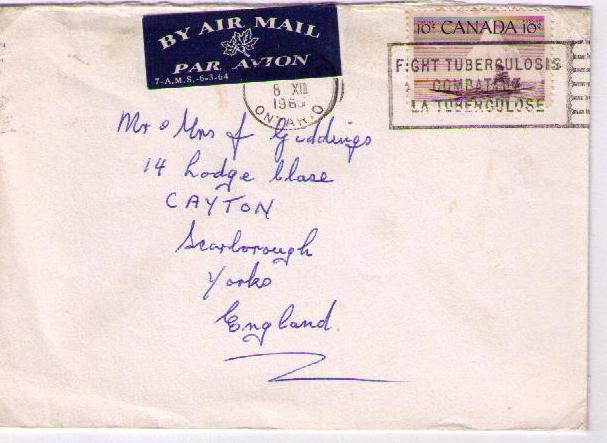 BY AIR MAIL
PAR AVION
7-A.M.S.-6-3-64
10¢ CANADA 10¢
8 XII
196
ONTARIO
FIGHT TUBERCULOSIS
COMBATTEZ
LA TUBERCULOSE
Mr & Mrs J Giddings
14 Lodge Close
CAYTON
Scarborough
Yorks
England.